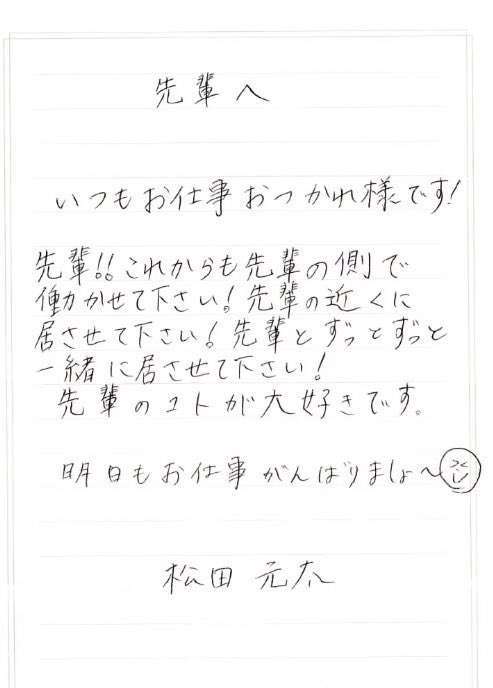 先輩へ
いつもお仕事おつかれ様です!
先輩!!これからも先輩の側で
働かせて下さい!先輩の近くに
居させて下さい!先輩とずっとずっと
一緒に居させて下さい!
先輩のコトが大好きです。
明日もお仕事がんばりましょ〜
松田元太